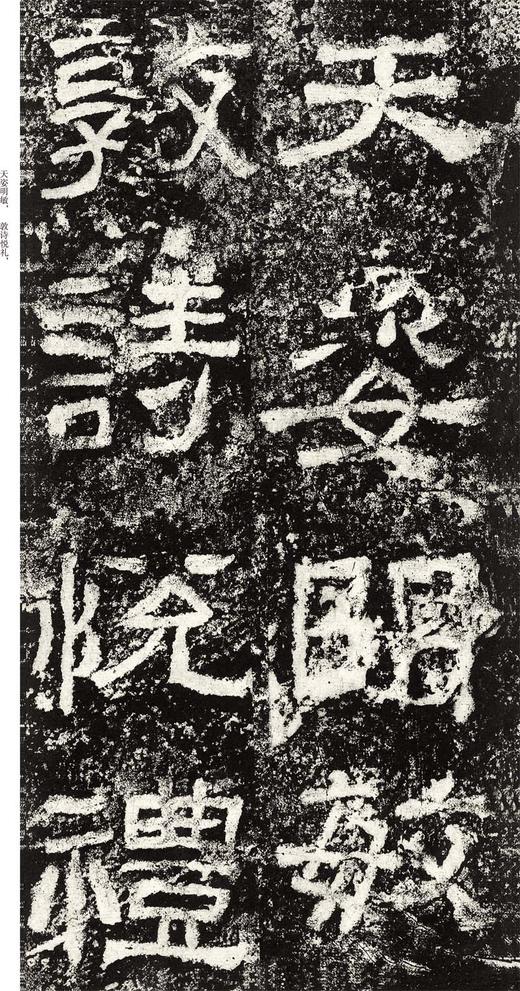 天姿明敏
敦詩悅禮
天姿明敏，敦诗悦礼，